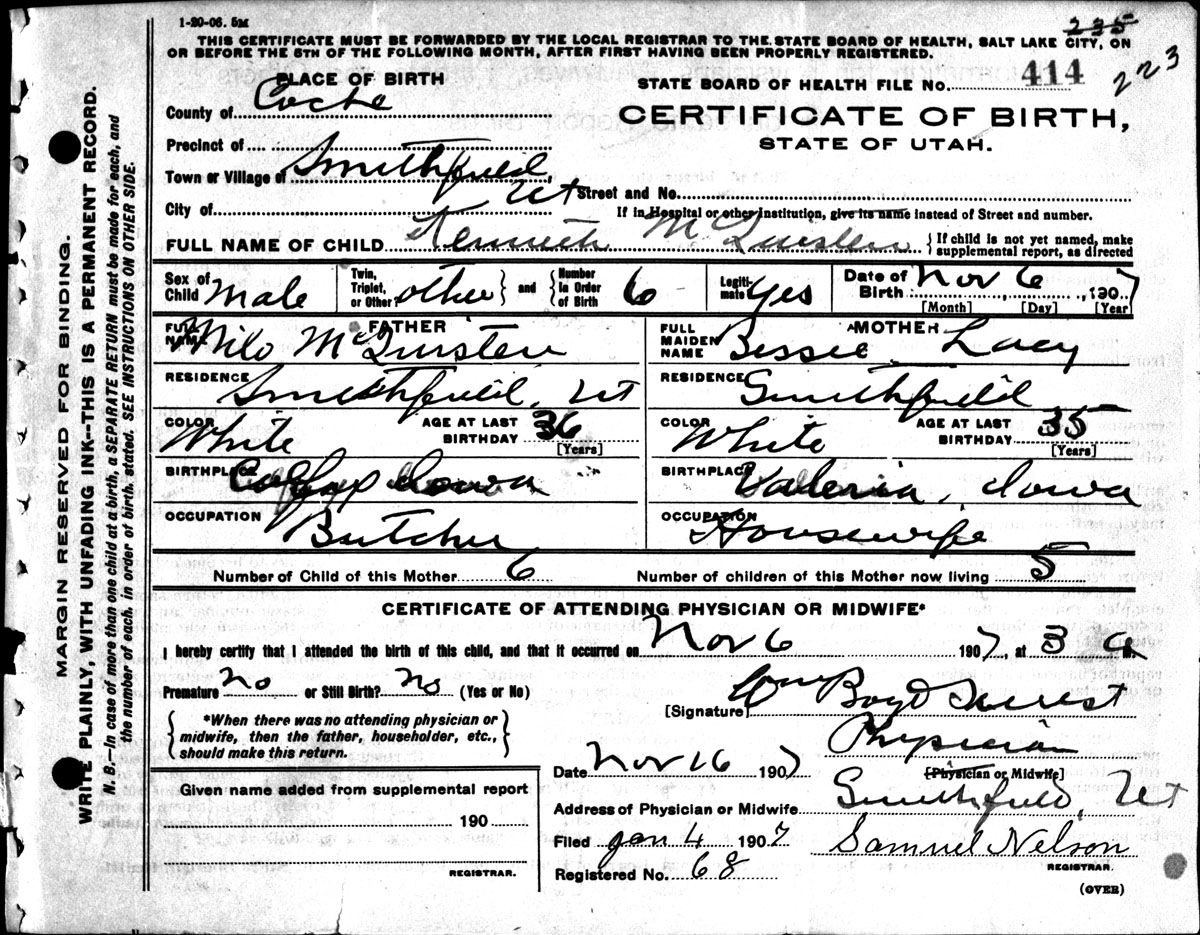 1-20-06. 5M
235
THIS CERTIFICATE MUST BE FORWARDED BY THE LOCAL REGISTRAR TO THE STATE BOARD OF HEALTH, SALT LAKE CITY, ON
OR BEFORE THE 5TH OF THE FOLLOWING MONTH, AFTER FIRST HAVING BEEN PROPERLY REGISTERED.
223
PLACE OF BIRTH
STATE BOARD OF HEALTH FILE No. 414
County of Cache
CERTIFICATE OF BIRTH,
STATE OF UTAH.
Precinct of
Town or Village of Smithfield,
Ut Street and No.
City of
If in Hospital or other Institution, give its name instead of Street and number.
FULL NAME OF CHILD Kenneth McQuisten { If child is not yet named, make supplemental report, as directed
Sex of Child Male Twin, Triplet, or Other other } and { Number in Order of Birth 6 Legitimate Yes Date of Birth Nov 6, 1907
[Month] [Day] [Year]
FATHER
FULL NAME Milo McQuisten
RESIDENCE Smithfield, Ut
COLOR White AGE AT LAST BIRTHDAY 36 [Years]
BIRTHPLACE Iowa
OCCUPATION Butcher
MOTHER
FULL MAIDEN NAME Bessie Lacy
RESIDENCE Smithfield
COLOR White AGE AT LAST BIRTHDAY 35 [Years]
BIRTHPLACE Valeria, Iowa
OCCUPATION Housewife
Number of Child of this Mother 6 Number of children of this Mother now living 5
CERTIFICATE OF ATTENDING PHYSICIAN OR MIDWIFE*
I hereby certify that I attended the birth of this child, and that it occurred on Nov 6 1907, at 3 a m.
Premature No or Still Birth? No (Yes or No)
{ *When there was no attending physician or midwife, then the father, householder, etc., should make this return. }
[Signature] Wm Boyd
Physician
[Physician or Midwife]
Date Nov 16 1907
Given name added from supplemental report
190
REGISTRAR.
Address of Physician or Midwife Smithfield, Ut
Filed Jan 4 1907 Samuel Nelson
REGISTRAR.
Registered No. 68
(OVER)
MARGIN RESERVED FOR BINDING.
WRITE PLAINLY, WITH UNFADING INK--THIS IS A PERMANENT RECORD.
N. B.—In case of more than one child at a birth, a SEPARATE RETURN must be made for each, and
the number of each, in order of birth, stated. SEE INSTRUCTIONS ON OTHER SIDE.